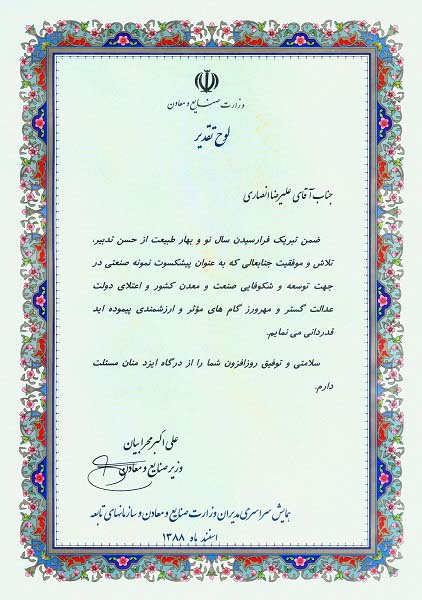 وزارت صنایع و معادن
لوح تقدیر
جناب آقای علیرضا انصاری
ضمن تبریک فرارسیدن سال نو و بهار طبیعت از حسن تدبیر،
تلاش و موفقیت جنابعالی که به عنوان پیشکسوت نمونه صنعتی در
جهت توسعه و شکوفایی صنعت و معدن کشور و اعتلای دولت
عدالت گستر و مهرورز گام های مؤثر و ارزشمندی پیموده اید
قدردانی می نمایم.
سلامتی و توفیق روزافزون شما را از درگاه ایزد منان مسئلت
دارم.
علی اکبر محرابیان
وزیر صنایع و معادن
همایش سراسری مدیران وزارت صنایع و معادن و سازمانهای تابعه
اسفند ماه ۱۳۸۸